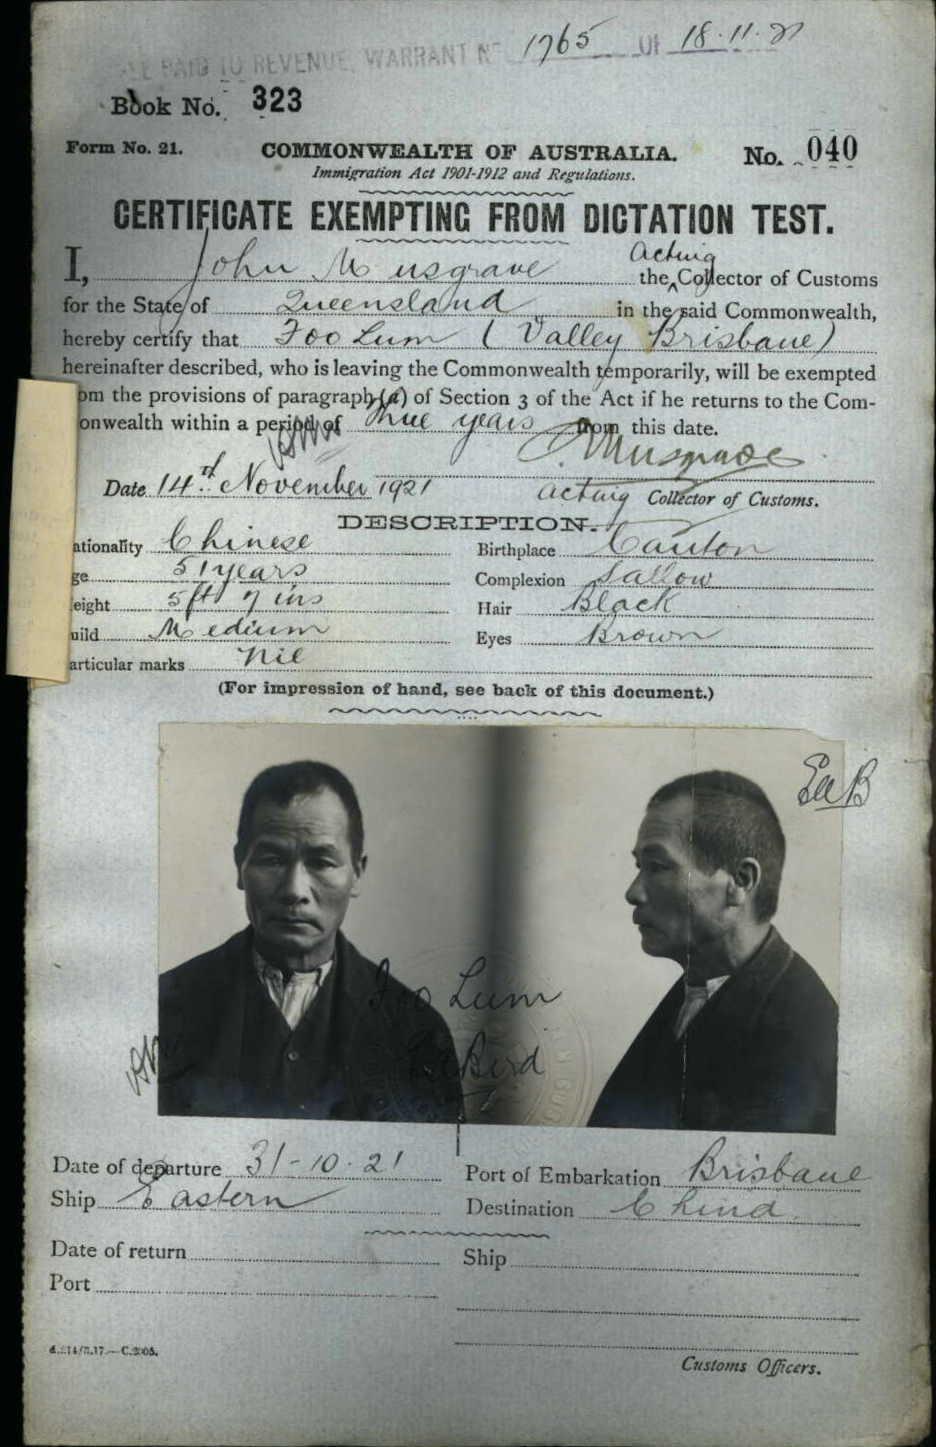 FEE PAID TO REVENUE, WARRANT No 1765 OF 18.11.21
Book No. 323
Form No. 21. COMMONWEALTH OF AUSTRALIA. No. 040
Immigration Act 1901-1912 and Regulations.
CERTIFICATE EXEMPTING FROM DICTATION TEST.
I, John Musgrave the Acting Collector of Customs
for the State of Queensland in the said Commonwealth,
hereby certify that Foo Lum (Valley Brisbane)
hereinafter described, who is leaving the Commonwealth temporarily, will be exempted
om the provisions of paragraph (a) of Section 3 of the Act if he returns to the Com-
onwealth within a period of three years from this date.
J Musgrave
Date 14th November 1921 acting Collector of Customs.
DESCRIPTION.
ationality Chinese Birthplace Canton
ge 51 years Complexion Sallow
eight 5 ft 7 ins Hair Black
uild Medium Eyes Brown
articular marks Nil
(For impression of hand, see back of this document.)
Foo Lum
Date of departure 31-10-21 Port of Embarkation Brisbane
Ship Eastern Destination China
Date of return Ship
Port
Customs Officers.